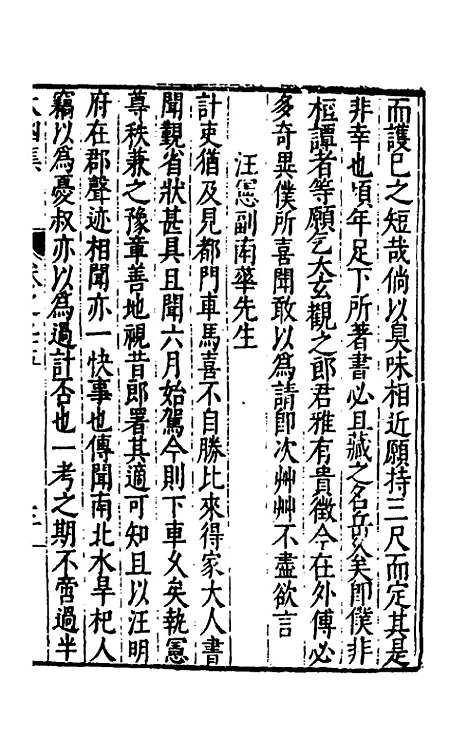 而護己之短哉倘以臭味相近願持三尺而定其是
非幸也頃年足下所著書必且藏之名岳久矣即僕非
桓譚者等願乞大玄觀之郎君雅有貴徵今在外傅必
多奇異僕所喜聞敢以為請即次艸艸不盡欲言
汪憲副南華先生
計吏猶及見都門車馬喜不自勝比來得家大人書
聞觀省狀甚具且聞六月始駕今則下車久矣執憲
尊秩兼之豫章善地視昔郎署其適可知且以汪明
府在郡聲迹相聞亦一快事也傳聞南北水旱杞人
竊以為憂叔亦以為過計否也一考之期不啻過半